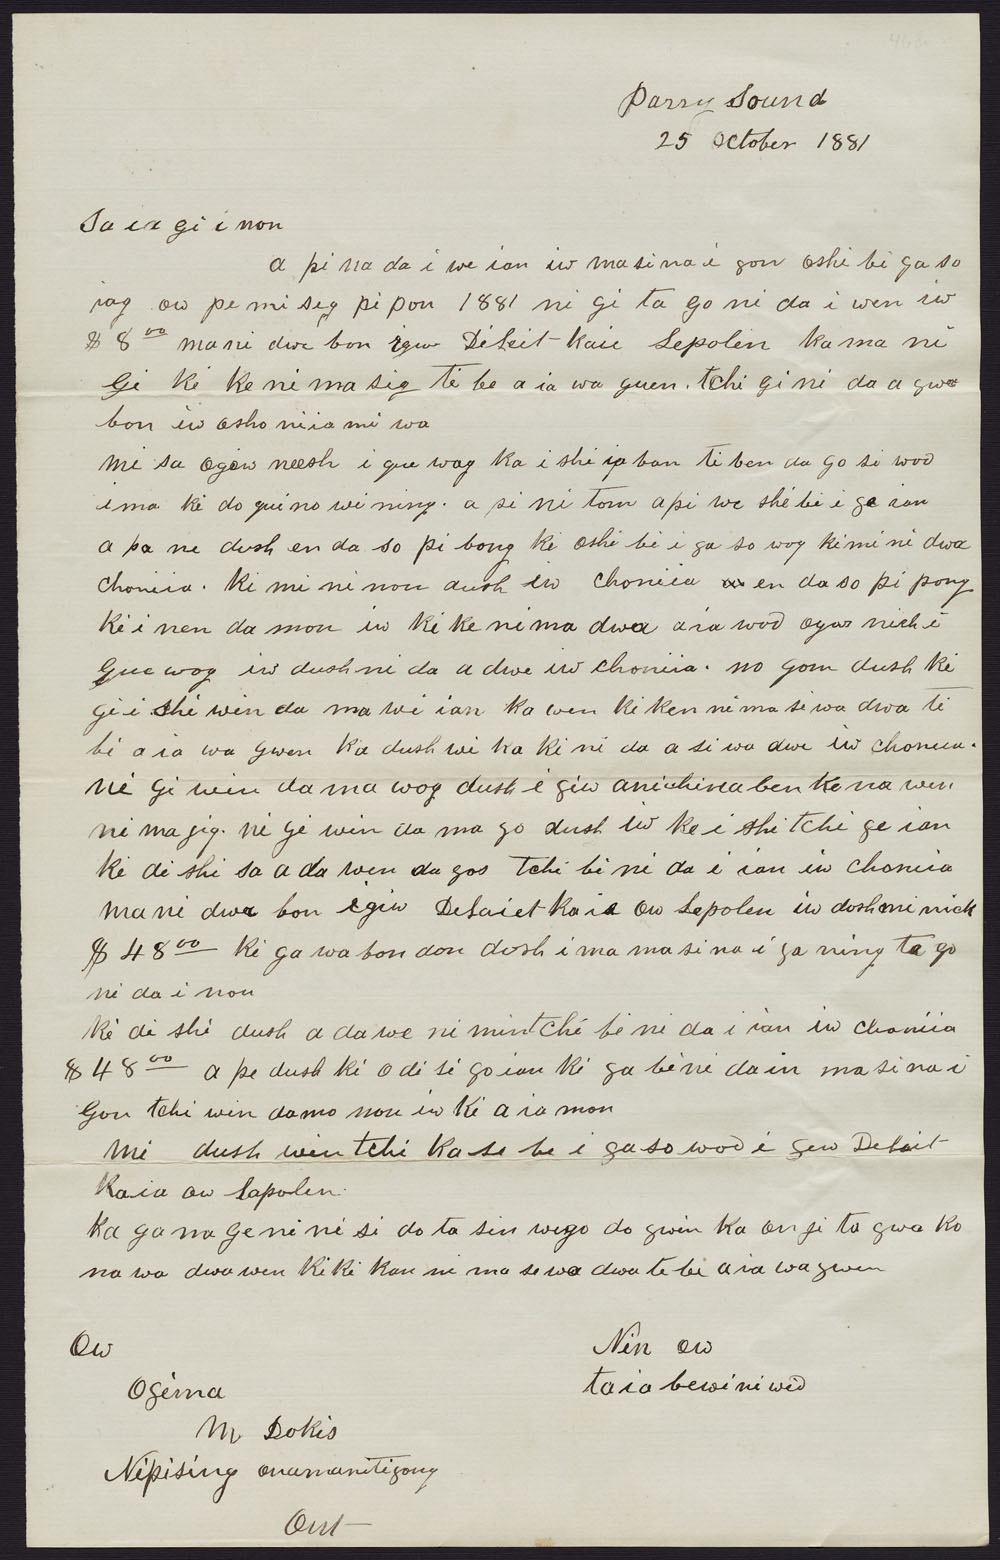 Parry Sound
25 October 1881
Sa ia gi i non
a pi na da i we ian iw masina i gon oshi bi ga so
iag ow pe mi seg pi pon 1881 ni gi ta go ni da i wen iw
$ 8 00 mani dwa bon igiw Debeit kaie Sepolen ka ma ni
gi ki ke ni ma sig ti be a ia wa guen. tchi gi ni da a gwa
bon iw osho niia mi wa
Mi sa ogow neesh i gue wag ka i shi ia ban ti ben da go si wod
ima ki do gui no wi ning. a pi ni tom api we shi bi i ge ian
a pa ne dush en da so pi bong ki oshi bi i ga so wog ki mi ni dwa
choniia. Ki mi ni non dush iw choniia en da so pi pong
Ki i nen da mon iw ki ke ni ma dwa aia wod ogow nich i
gue wog iw dush ni da a dwe iw choniia. no gom dush ki
gi i shi win da ma wi ian ka wen ki ken ni ma si wa dwa ti
bi a ia wa gwen ka dush wi ka ki ni da a si wa dwe iw choniia.
ni gi win da ma wog dush i giw anichinaben ke na wen
ni ma gig. ni gi win da ma go dush iw ke i shi tchi ge ian
ki di shi sa a da wen da gos tchi bi ni da i ian iw choniia
mani dwa bon igiw Debaiet kaie ow Sepolen iw dosh mi nick
$ 48 00 ki ga wa bon don dosh i ma ma si na i ga ning ta go
ni da i non
ki di shi dush a da we ni min tchi bi ni da i ian iw choniia
$ 48 00 a pe dush ki o di si go ian ki ga bi ni da in ma si na i
gon tchi win damo non iw ki a ia mon
Mi dush win tchi ka se be i ga so wod i gew Debait
kaia ow Sapolen.
Ka ga na ge ni ni si do ta sin wego do gwin ka on ji ta gwa ko
na wa dwa wen ki ki kan ni ma se wa dwa te bi a ia wa gwen
Ow
Ogima
M Dokis
Nipising onamanitigong
Ont
Nin ow
taia bewi ni wid